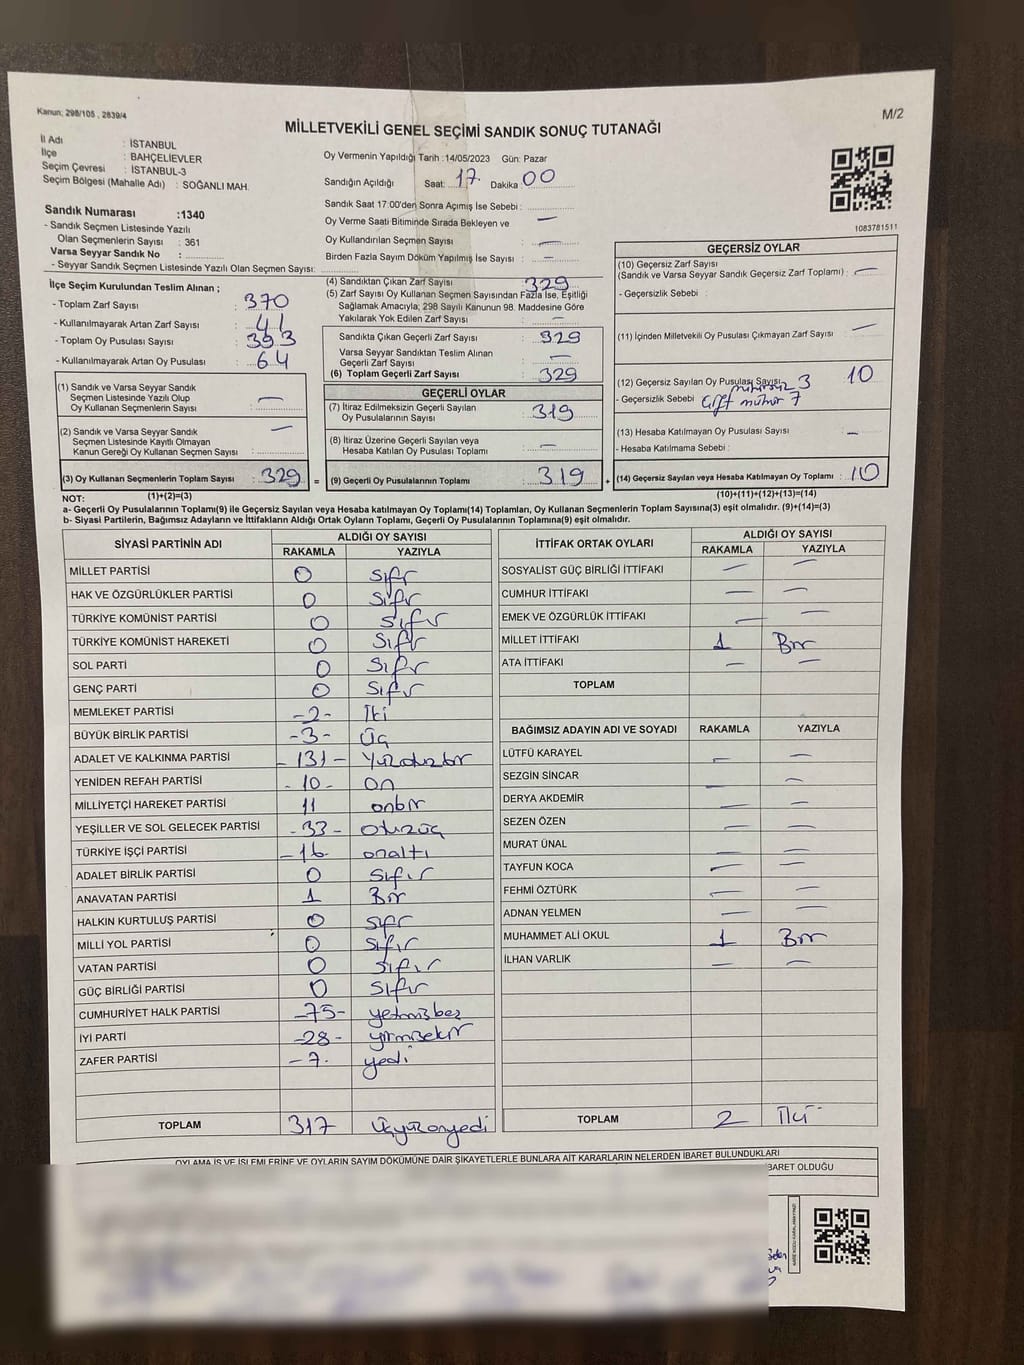 Kanun; 298/105 , 2839/4
M/2
MİLLETVEKİLİ GENEL SEÇİMİ SANDIK SONUÇ TUTANAĞI
İl Adı : İSTANBUL
İlçe : BAHÇELİEVLER
Seçim Çevresi : İSTANBUL-3
Seçim Bölgesi (Mahalle Adı) : SOĞANLI MAH.
Oy Vermenin Yapıldığı Tarih :14/05/2023 Gün: Pazar
Sandığın Açıldığı Saat: 17 Dakika: 00
Sandık Saat 17:00'den Sonra Açımış İse Sebebi :
Oy Verme Saati Bitiminde Sırada Bekleyen ve —
Oy Kullandırılan Seçmen Sayısı —
Birden Fazla Sayım Döküm Yapılmış İse Sayısı —
1083781511
Sandık Numarası :1340
- Sandık Seçmen Listesinde Yazılı
Olan Seçmenlerin Sayısı : 361
Varsa Seyyar Sandık No :
- Seyyar Sandık Seçmen Listesinde Yazılı Olan Seçmen Sayısı:
İlçe Seçim Kurulundan Teslim Alınan ;
- Toplam Zarf Sayısı : 370
- Kullanılmayarak Artan Zarf Sayısı : 41
- Toplam Oy Pusulası Sayısı : 393
- Kullanılmayarak Artan Oy Pusulası : 64
(1) Sandık ve Varsa Seyyar Sandık
Seçmen Listesinde Yazılı Olup
Oy Kullanan Seçmenlerin Sayısı : —
(2) Sandık ve Varsa Seyyar Sandık
Seçmen Listesinde Kayıtlı Olmayan
Kanun Gereği Oy Kullanan Seçmen Sayısı : —
(3) Oy Kullanan Seçmenlerin Toplam Sayısı : 329
(4) Sandıktan Çıkan Zarf Sayısı : 329
(5) Zarf Sayısı Oy Kullanan Seçmen Sayısından Fazla İse, Eşitliği
Sağlamak Amacıyla; 298 Sayılı Kanunun 98. Maddesine Göre
Yakılarak Yok Edilen Zarf Sayısı : —
Sandıkta Çıkan Geçerli Zarf Sayısı : 329
Varsa Seyyar Sandıktan Teslim Alınan
Geçerli Zarf Sayısı : —
(6) Toplam Geçerli Zarf Sayısı : 329
GEÇERLİ OYLAR
(7) İtiraz Edilmeksizin Geçerli Sayılan
Oy Pusulalarının Sayısı : 319
(8) İtiraz Üzerine Geçerli Sayılan veya
Hesaba Katılan Oy Pusulası Toplamı : —
= (9) Geçerli Oy Pusulalarının Toplamı : 319
GEÇERSİZ OYLAR
(10) Geçersiz Zarf Sayısı
(Sandık ve Varsa Seyyar Sandık Geçersiz Zarf Toplamı) : —
- Geçersizlik Sebebi :
(11) İçinden Milletvekili Oy Pusulası Çıkmayan Zarf Sayısı : —
(12) Geçersiz Sayılan Oy Pusulası Sayısı : 10
mühürsüz 3
- Geçersizlik Sebebi çift mühür 7
(13) Hesaba Katılmayan Oy Pusulası Sayısı : —
- Hesaba Katılmama Sebebi :
+ (14) Geçersiz Sayılan veya Hesaba Katılmayan Oy Toplamı : 10
NOT: (1)+(2)=(3)
(10)+(11)+(12)+(13)=(14)
a- Geçerli Oy Pusulalarının Toplamı(9) ile Geçersiz Sayılan veya Hesaba katılmayan Oy Toplamı(14) Toplamları, Oy Kullanan Seçmenlerin Toplam Sayısına(3) eşit olmalıdır. (9)+(14)=(3)
b- Siyasi Partilerin, Bağımsız Adayların ve İttifakların Aldığı Ortak Oyların Toplamı, Geçerli Oy Pusulalarının Toplamına(9) eşit olmalıdır.
SİYASİ PARTİNİN ADI ALDIĞI OY SAYISI
RAKAMLA YAZIYLA
MİLLET PARTİSİ 0 sıfır
HAK VE ÖZGÜRLÜKLER PARTİSİ 0 sıfır
TÜRKİYE KOMÜNİST PARTİSİ 0 sıfır
TÜRKİYE KOMÜNİST HAREKETİ 0 sıfır
SOL PARTİ 0 sıfır
GENÇ PARTİ 0 sıfır
MEMLEKET PARTİSİ -2- İki
BÜYÜK BİRLİK PARTİSİ -3- Üç
ADALET VE KALKINMA PARTİSİ -131- Yüzotuzbir
YENİDEN REFAH PARTİSİ -10- on
MİLLİYETÇİ HAREKET PARTİSİ 11 onbir
YEŞİLLER VE SOL GELECEK PARTİSİ -33- otuzüç
TÜRKİYE İŞÇİ PARTİSİ -16- onaltı
ADALET BİRLİK PARTİSİ 0 sıfır
ANAVATAN PARTİSİ 1 Bir
HALKIN KURTULUŞ PARTİSİ 0 sıfır
MİLLİ YOL PARTİSİ 0 sıfır
VATAN PARTİSİ 0 sıfır
GÜÇ BİRLİĞİ PARTİSİ 0 sıfır
CUMHURİYET HALK PARTİSİ -75- yetmişbeş
İYİ PARTİ -28- yirmisekir
ZAFER PARTİSİ -7- yedi
TOPLAM 317 üçyüzonyedi
İTTİFAK ORTAK OYLARI ALDIĞI OY SAYISI
RAKAMLA YAZIYLA
SOSYALİST GÜÇ BİRLİĞİ İTTİFAKI — —
CUMHUR İTTİFAKI — —
EMEK VE ÖZGÜRLÜK İTTİFAKI — —
MİLLET İTTİFAKI 1 Bir
ATA İTTİFAKI — —
TOPLAM
BAĞIMSIZ ADAYIN ADI VE SOYADI RAKAMLA YAZIYLA
LÜTFÜ KARAYEL — —
SEZGİN SİNCAR — —
DERYA AKDEMİR — —
SEZEN ÖZEN — —
MURAT ÜNAL — —
TAYFUN KOCA — —
FEHMİ ÖZTÜRK — —
ADNAN YELMEN — —
MUHAMMET ALİ OKUL 1 Bir
İLHAN VARLIK — —
TOPLAM 2 İki
OYLAMA İŞ VE İŞLEMLERİNE VE OYLARIN SAYIM DÖKÜMÜNE DAİR ŞİKAYETLERLE BUNLARA AİT KARARLARIN NELERDEN İBARET BULUNDUKLARI
İBARET OLDUĞU